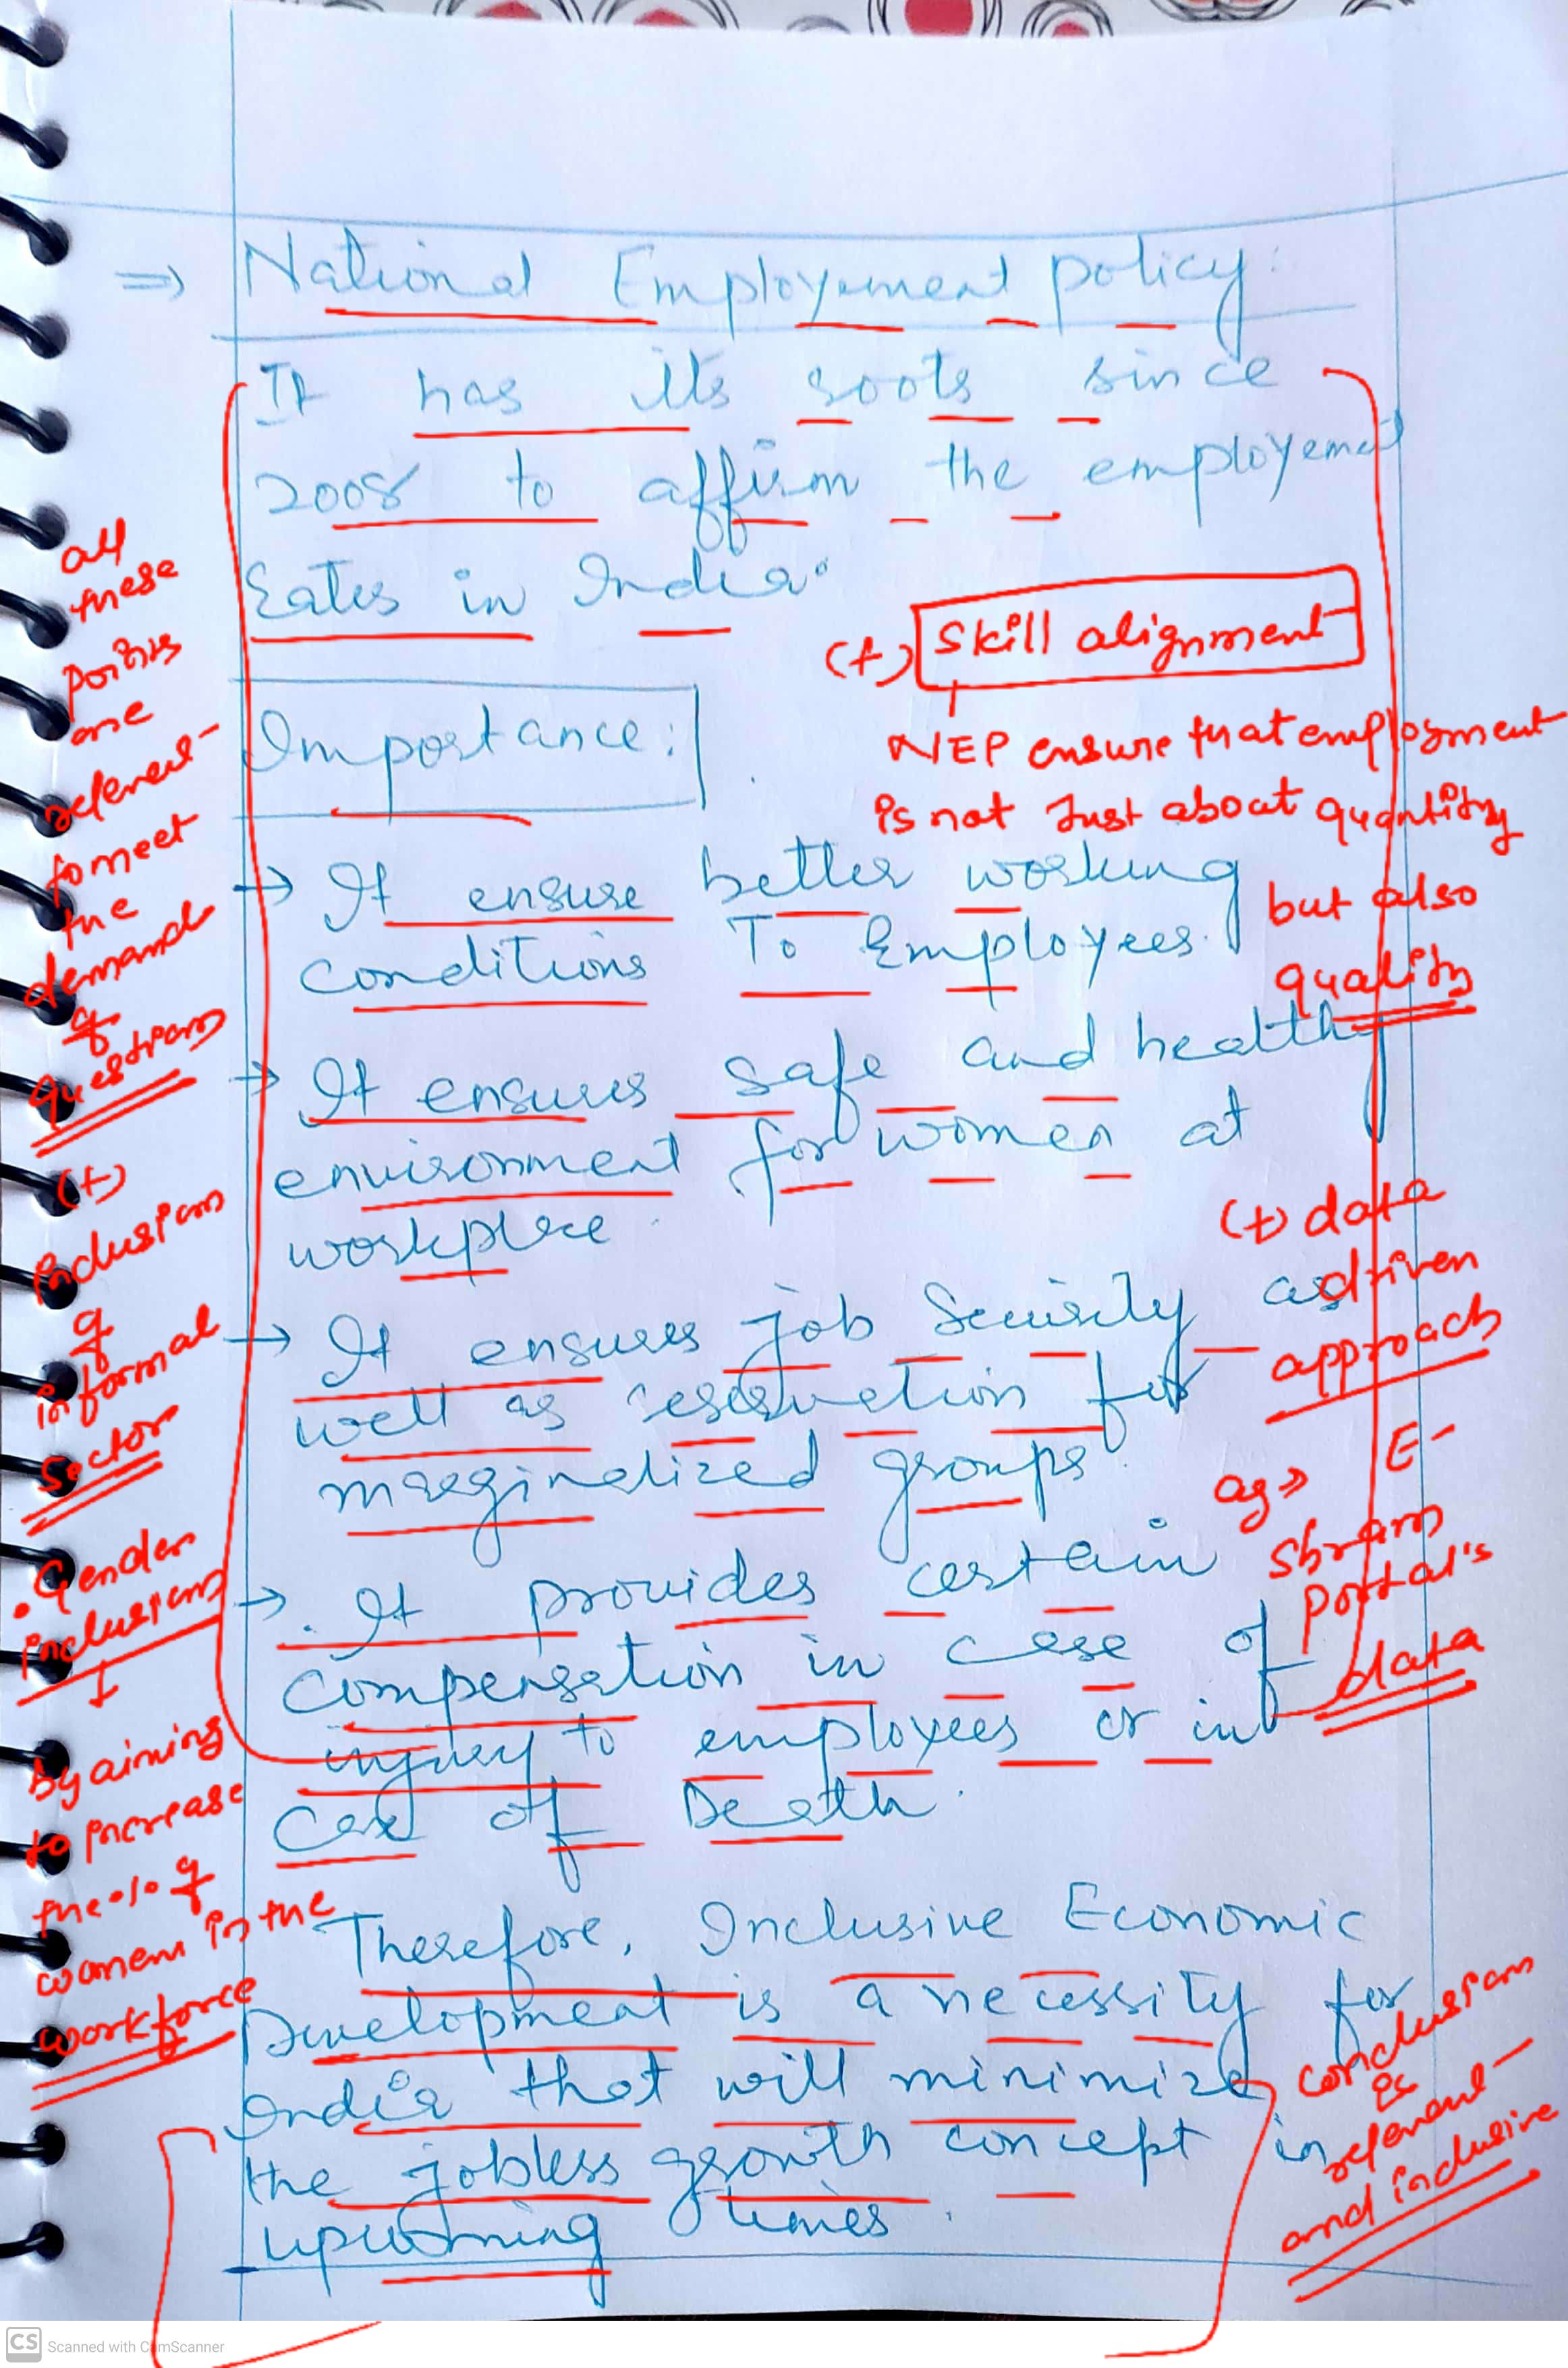 ⇒ National Employement policy:
It has its roots since
2008 to affirm the employement
rates in India.
Importance:
→ It ensure better working
conditions To Employees.
→ It ensures safe and healthy
environment for women at
workplace.
→ It ensures job Security as
well as reservation for
marginalized groups.
→ It provides certain
compensation in case of
injury to employees or in
case of Death.
Therefore, Inclusive Economic
Development is a necessity for
India that will minimize
the jobless growth concept in
upcoming times.
all
these
points
are
relevant
to meet
the
demand
of
question
(+)
inclusion
of
informal
sector
• Gender
inclusion
↓
By aiming
to increase
the % of
women in the
workforce
(+) Skill alignment
NEP ensure that employment
is not Just about quantity
but also
quality
(+) data
driven
approach
eg ⇒ E-
Shram
portal's
data
conclusion
is
relevant
and inclusive
CS Scanned with CamScanner